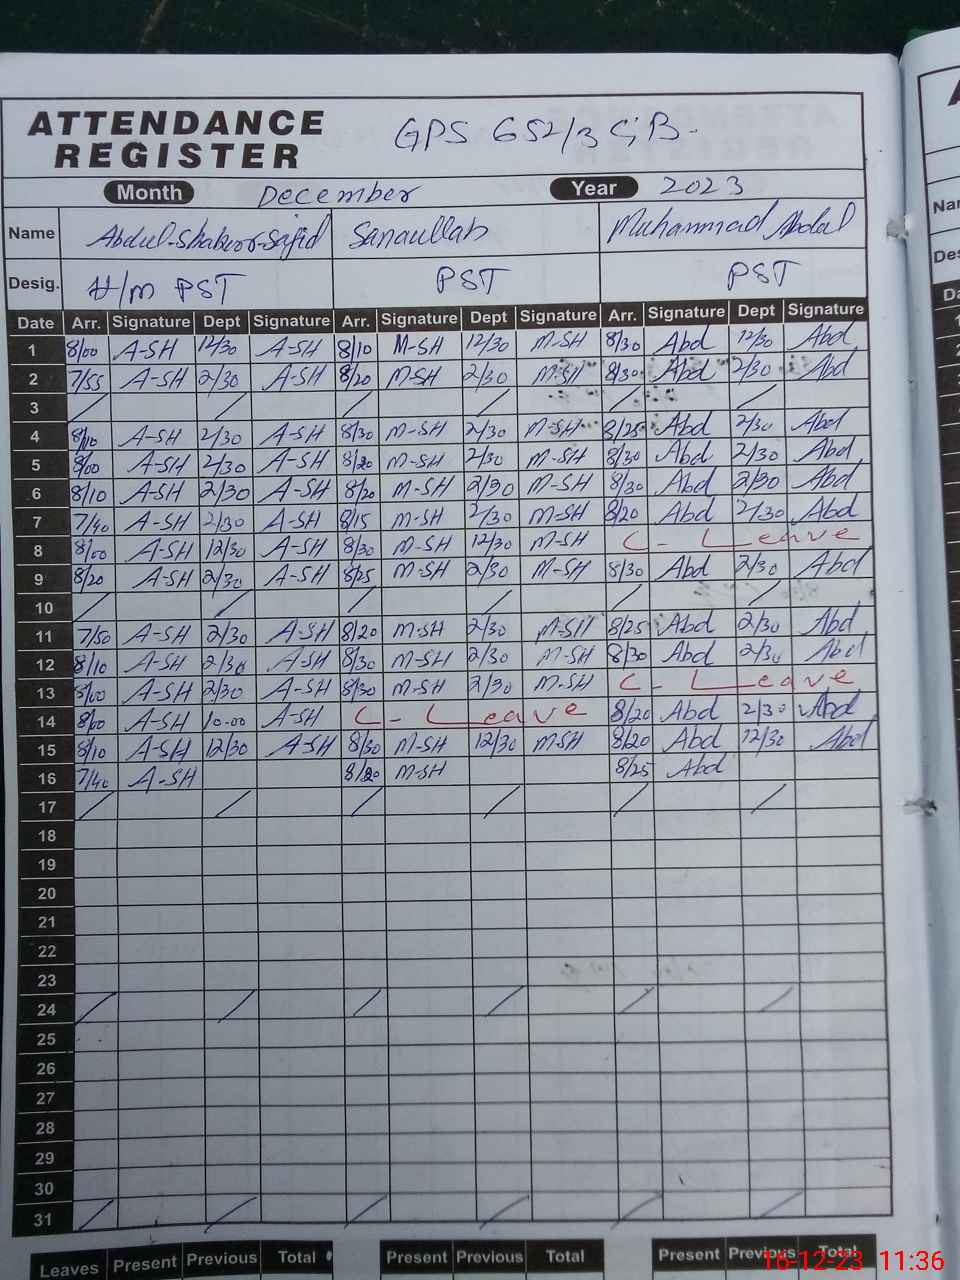 ATTENDANCE
REGISTER
GPS 652/3 G.B.
Month December Year 2023
Name Abdul-Shakoor-Sajid Sanaullah Muhammad Abdal
Desig. H/m PST PST PST
Date Arr. Signature Dept Signature Arr. Signature Dept Signature Arr. Signature Dept Signature
1 8/00 A-SH 12/30 A-SH 8/10 M-SH 12/30 M-SH 8/30 Abd 12/30 Abd
2 7/55 A-SH 2/30 A-SH 8/20 M-SH 2/30 M-SH 8/30 Abd 2/30 Abd
3 / / / / / /
4 8/10 A-SH 2/30 A-SH 8/30 M-SH 2/30 M-SH 8/25 Abd 2/30 Abd
5 8/00 A-SH 2/30 A-SH 8/20 M-SH 2/30 M-SH 8/30 Abd 2/30 Abd
6 8/10 A-SH 2/30 A-SH 8/20 M-SH 2/30 M-SH 8/30 Abd 2/30 Abd
7 7/40 A-SH 2/30 A-SH 8/15 M-SH 2/30 M-SH 8/20 Abd 2/30 Abd
8 8/00 A-SH 12/30 A-SH 8/30 M-SH 12/30 M-SH C - Leave
9 8/20 A-SH 2/30 A-SH 8/25 M-SH 2/30 M-SH 8/30 Abd 2/30 Abd
10 / / / / / /
11 7/50 A-SH 2/30 A-SH 8/20 M-SH 2/30 M-SH 8/25 Abd 2/30 Abd
12 8/10 A-SH 2/30 A-SH 8/30 M-SH 2/30 M-SH 8/30 Abd 2/30 Abd
13 8/00 A-SH 2/30 A-SH 8/30 M-SH 2/30 M-SH C - Leave
14 8/00 A-SH 10-00 A-SH C - Leave 8/20 Abd 2/30 Abd
15 8/10 A-SH 12/30 A-SH 8/30 M-SH 12/30 M-SH 8/20 Abd 12/30 Abd
16 7/40 A-SH 8/20 M-SH 8/25 Abd
17 / / / / / /
18
19
20
21
22
23
24 / / / / / /
25
26
27
28
29
30
31 / / / / / /
Leaves Present Previous Total Present Previous Total Present Previous Total
16-12-23 11:36